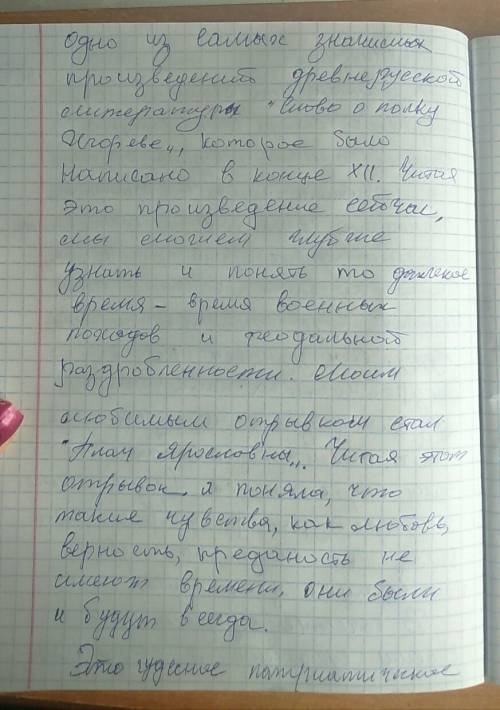 одно из самых значимых
произведений древнерусской
литературы "Слово о полку
Игореве", которое было
написано в конце XII. Читая
это произведение сейчас,
мы сможем глубже
узнать и понять то далекое
время - время военных
походов и феодальной
раздробленности. Моим
любимым отрывком стал
"Плач Ярославны". Читая этот
отрывок, я поняла, что
такие чувства, как любовь,
верность, преданость не
имеют времени, они были
и будут всегда.
Это чудесное патриатическое